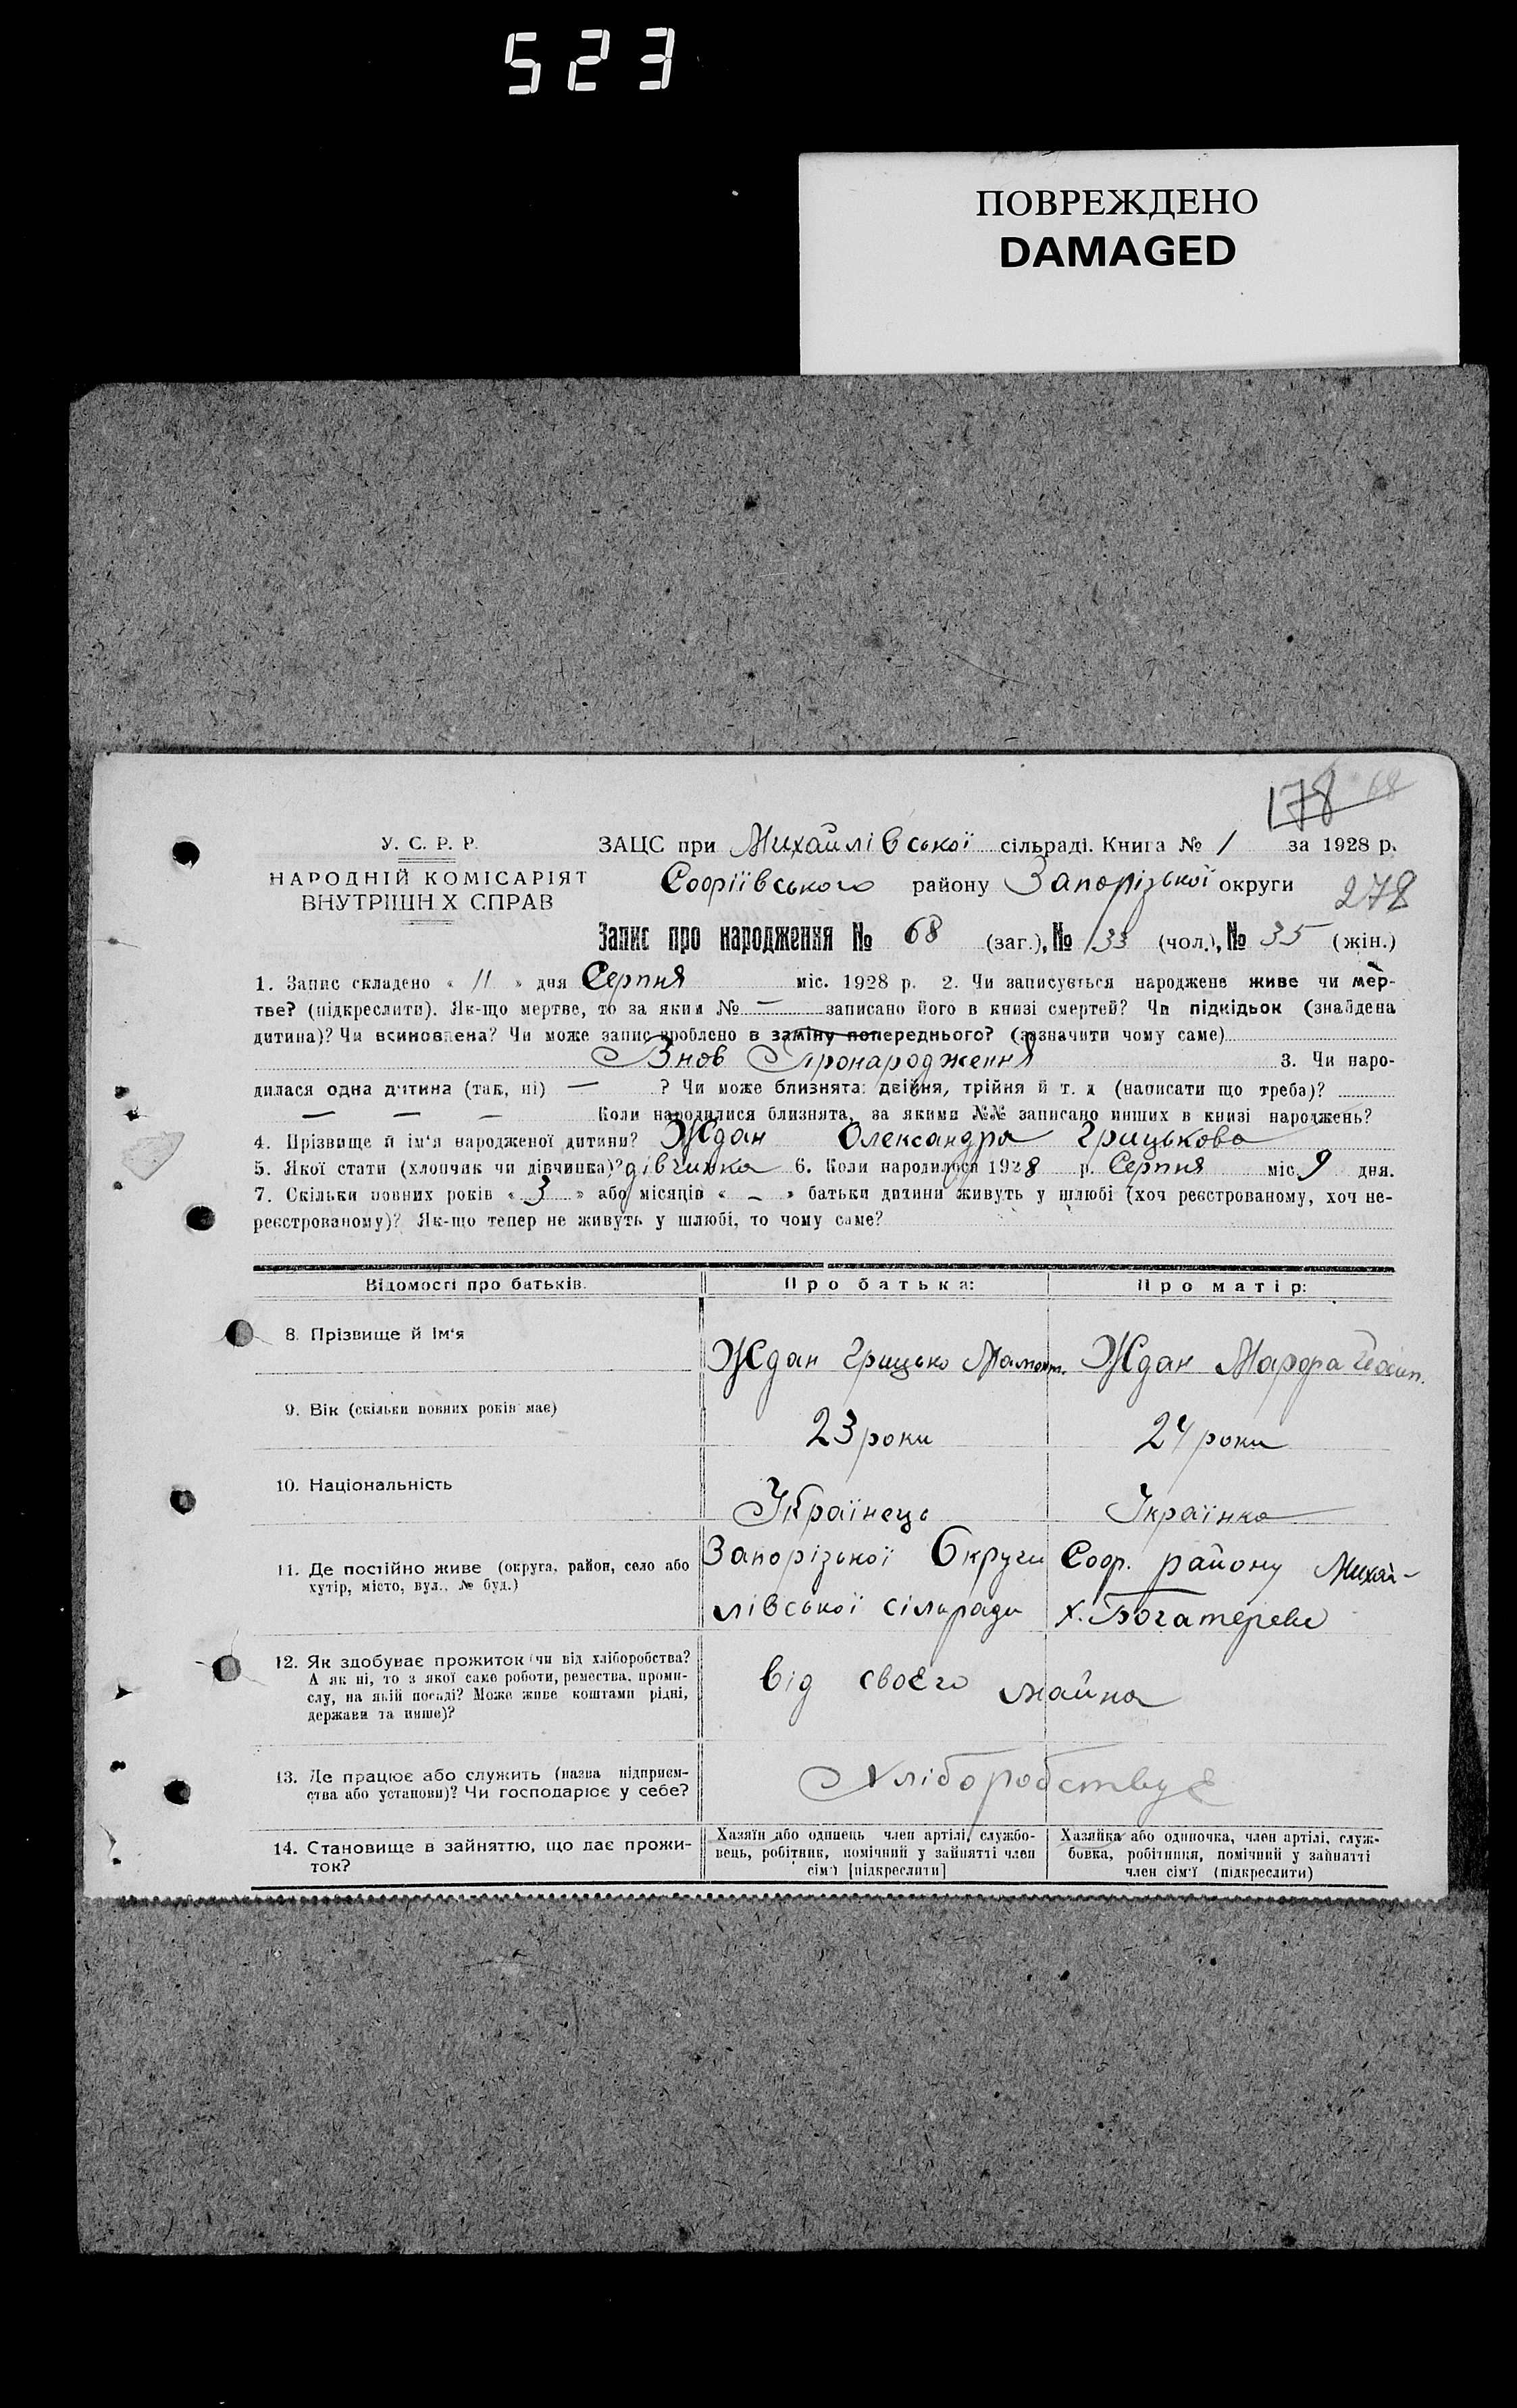 523
ПОВРЕЖДЕНО
DAMAGED
178 68
У. С. Р. Р.
НАРОДНІЙ КОМІСАРІЯТ
ВНУТРІШНИХ СПРАВ
ЗАЦС при Михайлівської сільраді. Книга № 1 за 1928 р.
Софіївського району Запорізької округи
278
Запис про народження № 68 (заг.), № 33 (чол.), № 35 (жін.)
1. Запис складено « 11 » дня Серпня міс. 1928 р. 2. Чи записується народжене живе чи мер-
тве? (підкреслити). Як-що мертве, то за яким № — записано його в книзі смертей? Чи підкідьок (знайдена
дитина)? Чи всиновлена? Чи може запис зроблено в заміну попереднього? (зазначити чому саме)
Знов Пронародження 3. Чи наро-
дилася одна дитина (так, ні) — ? Чи може близнята: двійня, трійня й т. д (написати що треба)?
— — — Коли народилися близнята, за якими №№ записано инших в книзі народжень?
4. Прізвище й ім'я народженої дитини? Ждан Олександра Грицькова
5. Якої стати (хлопчик чи дівчинка)? дівчинка 6. Коли народилося 1928 р. Серпня міс. 9 дня.
7. Скільки повних років « 3 » або місяців « – » батьки дитини живуть у шлюбі (хоч реєстрованому, хоч не-
реєстрованому)? Як-що тепер не живуть у шлюбі, то чому саме?
Відомості про батьків. Про батька: Про матір:
8. Прізвище й ім'я
Ждан Грицько Мамонт. Ждан Марфа Йосип.
9. Вік (скільки повних років має)
23 роки 24 роки
10. Національність
Українець Українка
11. Де постійно живе (округа, район, село або
хутір, місто, вул., № буд.)
Запорізької Округи Соф. району Михай-
лівської сільради х.
12. Як здобуває прожиток (чи від хліборобства?
А як ні, то з якої саме роботи, ремества, проми-
слу, на якій посаді? Може живе коштами рідні,
держави та инше)?
від своєго майна
13. Де працює або служить (назва підприєм-
ства або установи)? Чи господарює у себе?
Хліборобствує
14. Становище в зайняттю, що дає прожи-
ток?
Хазяїн або одинець член артілі, службо-
вець, робітник, помічний у зайнятті член
сім'ї [підкреслити]
Хазяйка або одиночка, член артілі, служ-
бовка, робітниця, помічний у зайнятті
член сім'ї (підкреслити)